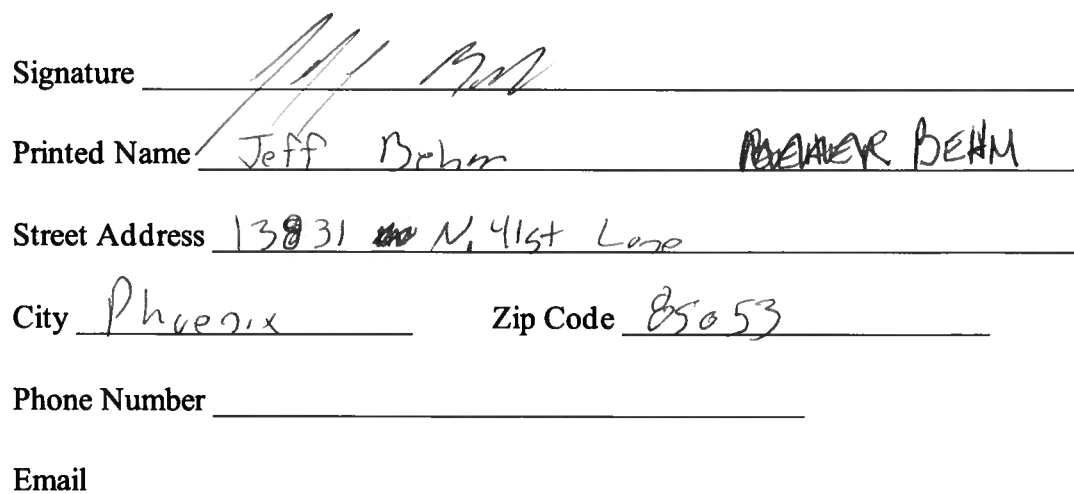 Signature Jeff
Printed Name Jeff Behm BEHM
Street Address 13831 N. 41st Lane
City Phoenix Zip Code 85053
Phone Number
Email